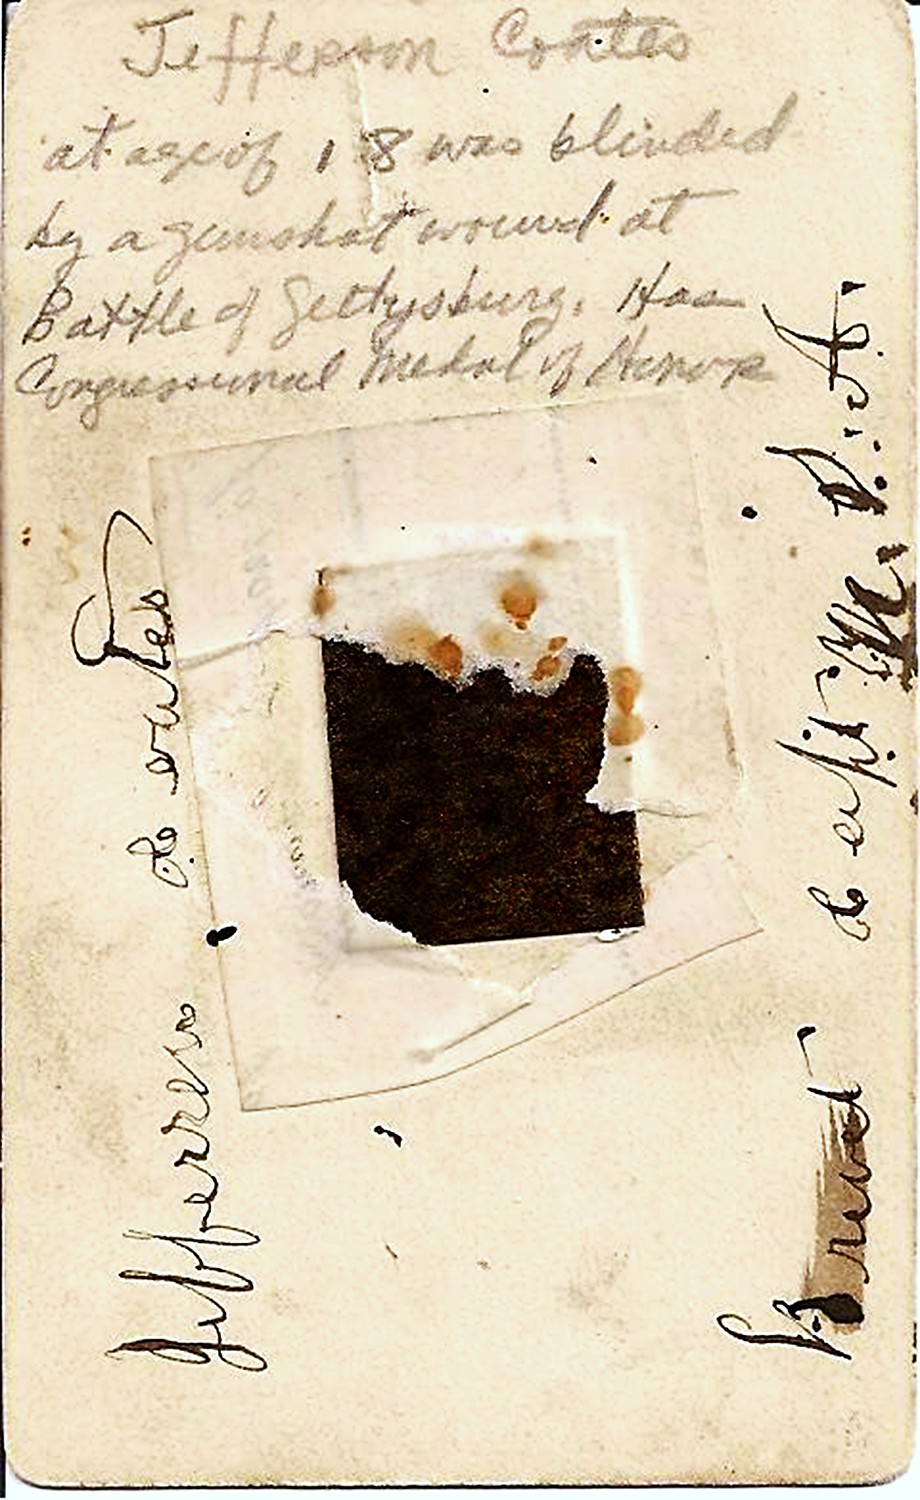 Jefferson Coates
at age of 18 was blinded
by a gunshot wound at
Battle of Gettysburg. Has
Congressional Medal of Honor
Jefferson Coates
Brevet Capt U. S. A.